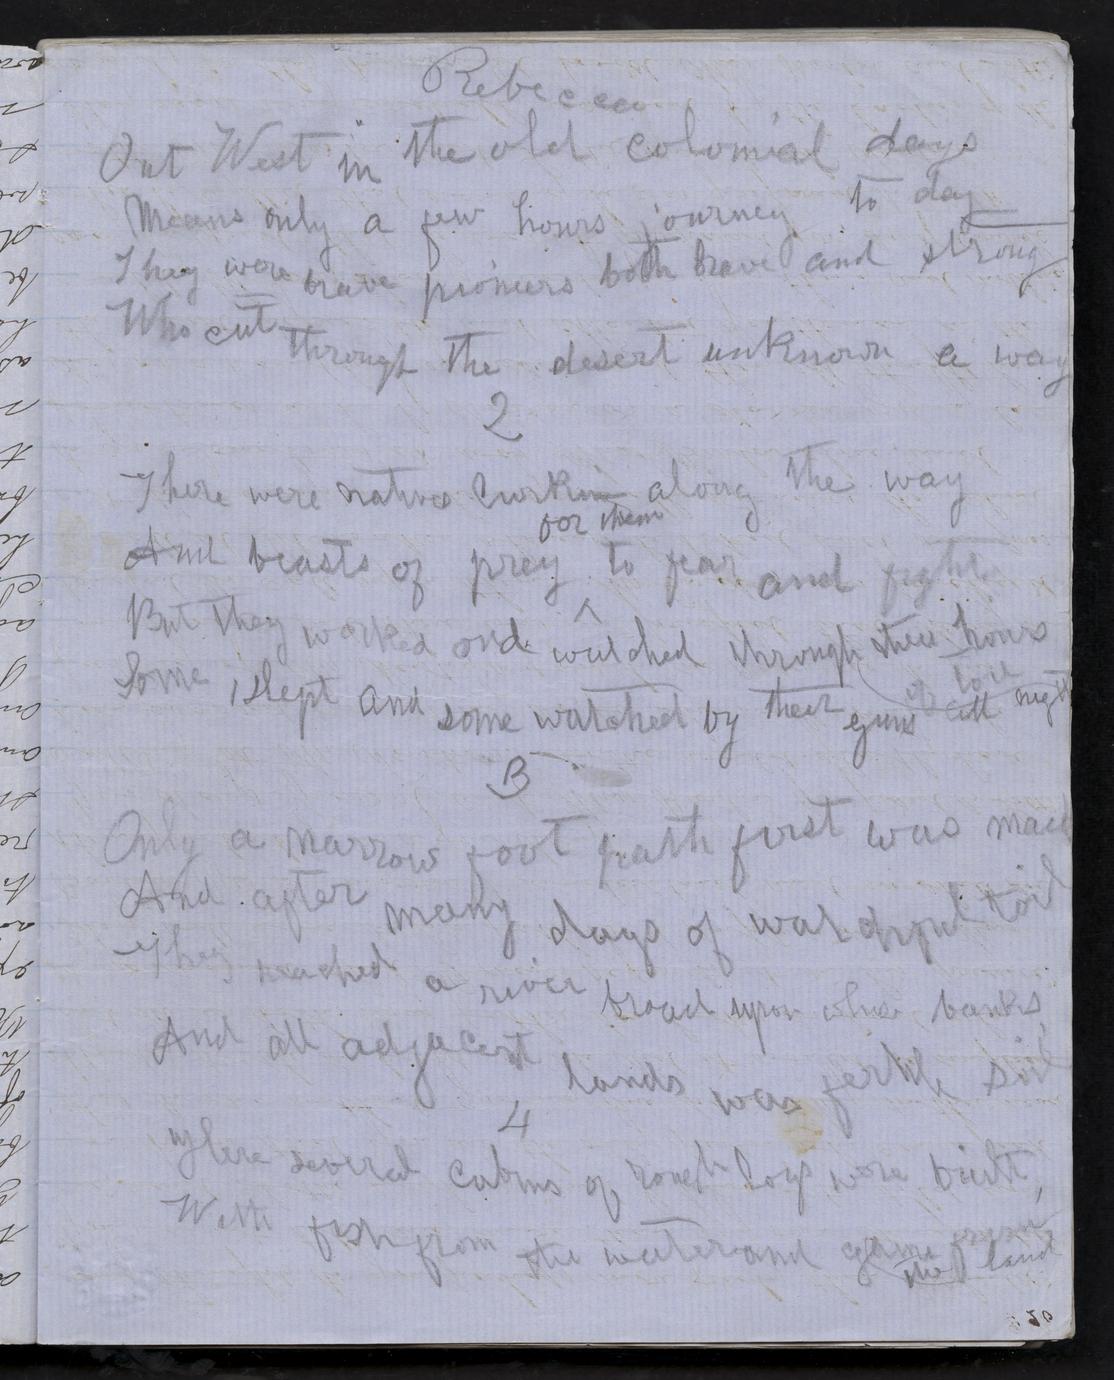 Rebecca
Out West in the old colonial days
Means only a few hours journey to day
They were brave pioneers both brave and strong
Who cut through the desert unknown a way
2
There were natives lurkin along the way
for them
And beasts of prey to fear and fight
But they worked and ^ watched through their hours
of toil
Some slept and some watched by their guns all night
3
Only a narrow foot path first was made
And after many days of watchful toil
They reached a river broad upon whose banks,
And all adjacent lands was fertile soil
4
Where several cabins of rough logs were built,
With fish from the water and game from
the land